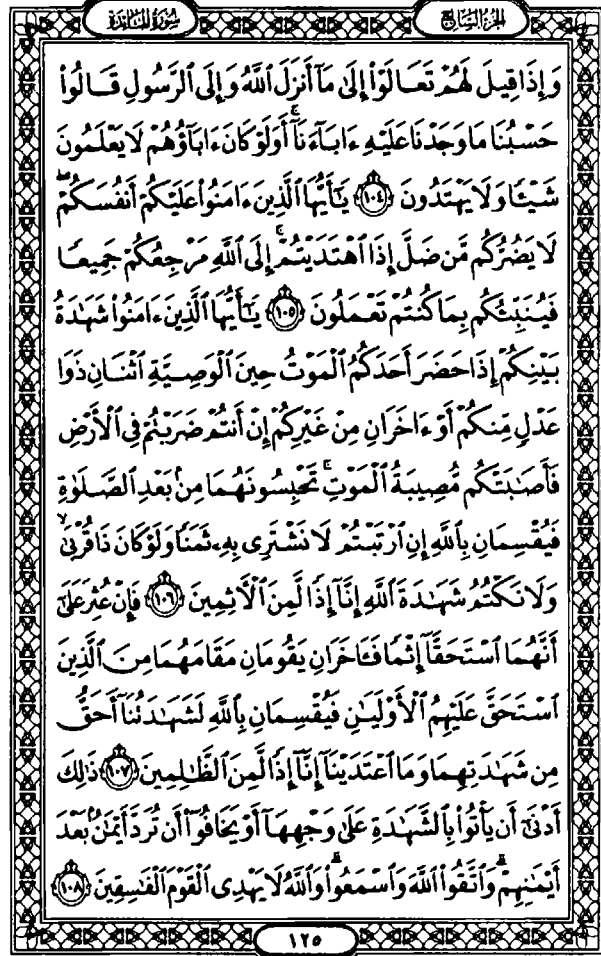 سُورَةُ المَائِدَةِ
الجزء السابع
وَإِذَا قِيلَ لَهُمْ تَعَالَوْا۟ إِلَىٰ مَآ أَنزَلَ ٱللَّهُ وَإِلَى ٱلرَّسُولِ قَالُوا۟
حَسْبُنَا مَا وَجَدْنَا عَلَيْهِ ءَابَآءَنَآ ۚ أَوَلَوْ كَانَ ءَابَآؤُهُمْ لَا يَعْلَمُونَ
شَيْـًٔا وَلَا يَهْتَدُونَ ﴿١٠٤﴾ يَـٰٓأَيُّهَا ٱلَّذِينَ ءَامَنُوا۟ عَلَيْكُمْ أَنفُسَكُمْ ۖ
لَا يَضُرُّكُم مَّن ضَلَّ إِذَا ٱهْتَدَيْتُمْ ۚ إِلَى ٱللَّهِ مَرْجِعُكُمْ جَمِيعًا
فَيُنَبِّئُكُم بِمَا كُنتُمْ تَعْمَلُونَ ﴿١٠٥﴾ يَـٰٓأَيُّهَا ٱلَّذِينَ ءَامَنُوا۟ شَهَـٰدَةُ
بَيْنِكُمْ إِذَا حَضَرَ أَحَدَكُمُ ٱلْمَوْتُ حِينَ ٱلْوَصِيَّةِ ٱثْنَانِ ذَوَا
عَدْلٍ مِّنكُمْ أَوْ ءَاخَرَانِ مِنْ غَيْرِكُمْ إِنْ أَنتُمْ ضَرَبْتُمْ فِى ٱلْأَرْضِ
فَأَصَـٰبَتْكُم مُّصِيبَةُ ٱلْمَوْتِ ۚ تَحْبِسُونَهُمَا مِنۢ بَعْدِ ٱلصَّلَوٰةِ
فَيُقْسِمَانِ بِٱللَّهِ إِنِ ٱرْتَبْتُمْ لَا نَشْتَرِى بِهِۦ ثَمَنًا وَلَوْ كَانَ ذَا قُرْبَىٰ ۙ
وَلَا نَكْتُمُ شَهَـٰدَةَ ٱللَّهِ إِنَّآ إِذًا لَّمِنَ ٱلْـَٔاثِمِينَ ﴿١٠٦﴾ فَإِنْ عُثِرَ عَلَىٰٓ
أَنَّهُمَا ٱسْتَحَقَّآ إِثْمًا فَـَٔاخَرَانِ يَقُومَانِ مَقَامَهُمَا مِنَ ٱلَّذِينَ
ٱسْتَحَقَّ عَلَيْهِمُ ٱلْأَوْلَيَـٰنِ فَيُقْسِمَانِ بِٱللَّهِ لَشَهَـٰدَتُنَآ أَحَقُّ
مِن شَهَـٰدَتِهِمَا وَمَا ٱعْتَدَيْنَآ إِنَّآ إِذًا لَّمِنَ ٱلظَّـٰلِمِينَ ﴿١٠٧﴾ ذَٰلِكَ
أَدْنَىٰٓ أَن يَأْتُوا۟ بِٱلشَّهَـٰدَةِ عَلَىٰ وَجْهِهَآ أَوْ يَخَافُوٓا۟ أَن تُرَدَّ أَيْمَـٰنٌۢ بَعْدَ
أَيْمَـٰنِهِمْ ۗ وَٱتَّقُوا۟ ٱللَّهَ وَٱسْمَعُوا۟ ۗ وَٱللَّهُ لَا يَهْدِى ٱلْقَوْمَ ٱلْفَـٰسِقِينَ ﴿١٠٨﴾
١٢٥